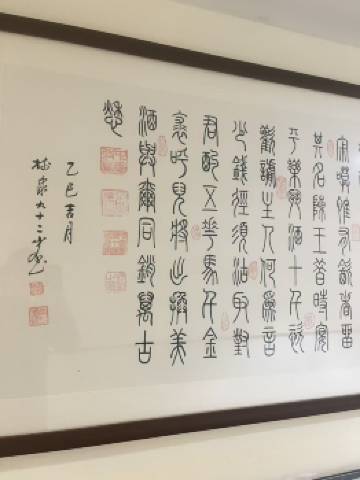 寂寞惟有飲者留
其名陳王昔時宴
平樂斗酒十千恣
歡謔主人何為言
少錢徑須沽取對
君酌五華馬千金
裘呼兒將出換美
酒與爾同銷萬古
愁
乙巳吉月
九十二